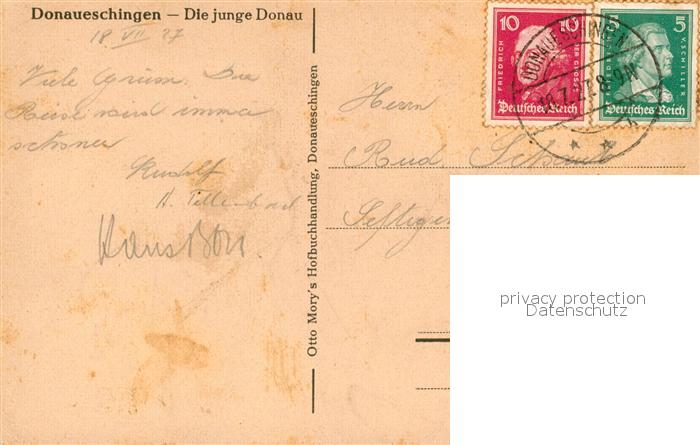 Donaueschingen — Die junge Donau
18 VII 27
Viele Grüsse. Die
Reise wird immer
schöner
Rudolf
Hans
Otto Mory's Hofbuchhandlung, Donaueschingen
Herrn
Rud
10 10
FRIEDRICH DER GROSSE
Deutsches Reich
5 5
FRIEDRICH V. SCHILLER
Deutsches Reich
DONAUESCHINGEN
18.7.27. 8-9 N
privacy protection
Datenschutz